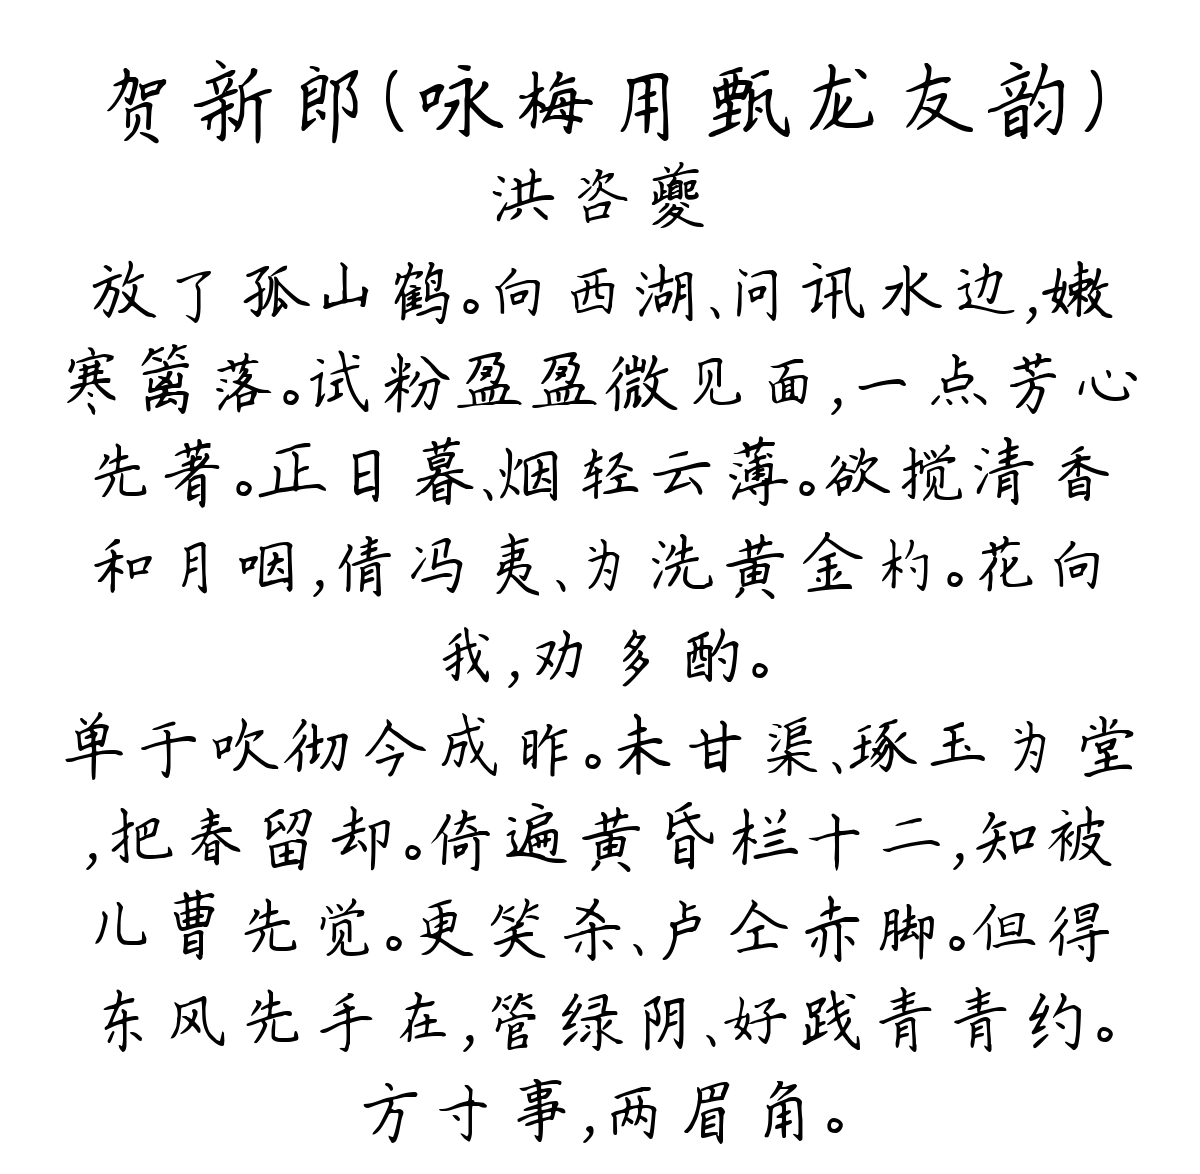 贺新郎(咏梅用甄龙友韵)
洪咨夔
放了孤山鹤。向西湖、问讯水边,嫩
寒篱落。试粉盈盈微见面,一点芳心
先著。正日暮、烟轻云薄。欲搅清香
和月咽,倩冯夷、为洗黄金杓。花向
我,劝多酌。
单于吹彻今成昨。未甘渠、琢玉为堂
,把春留却。倚遍黄昏栏十二,知被
儿曹先觉。更笑杀、卢仝赤脚。但得
东风先手在,管绿阴、好践青青约。
方寸事,两眉角。